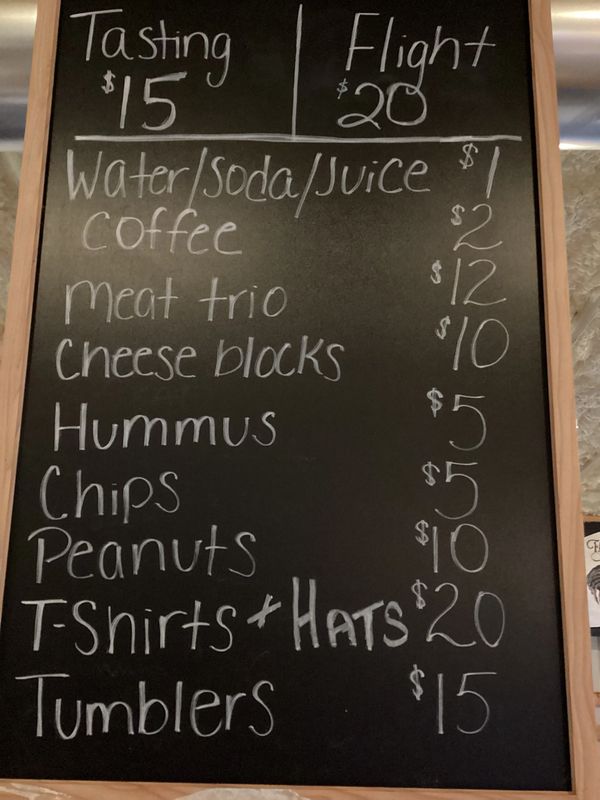 Tasting | Flight
$15 | $20
Water/Soda/Juice $1
Coffee $2
Meat trio $12
Cheese blocks $10
Hummus $5
Chips $5
Peanuts $10
T-Shirts + HATS $20
Tumblers $15